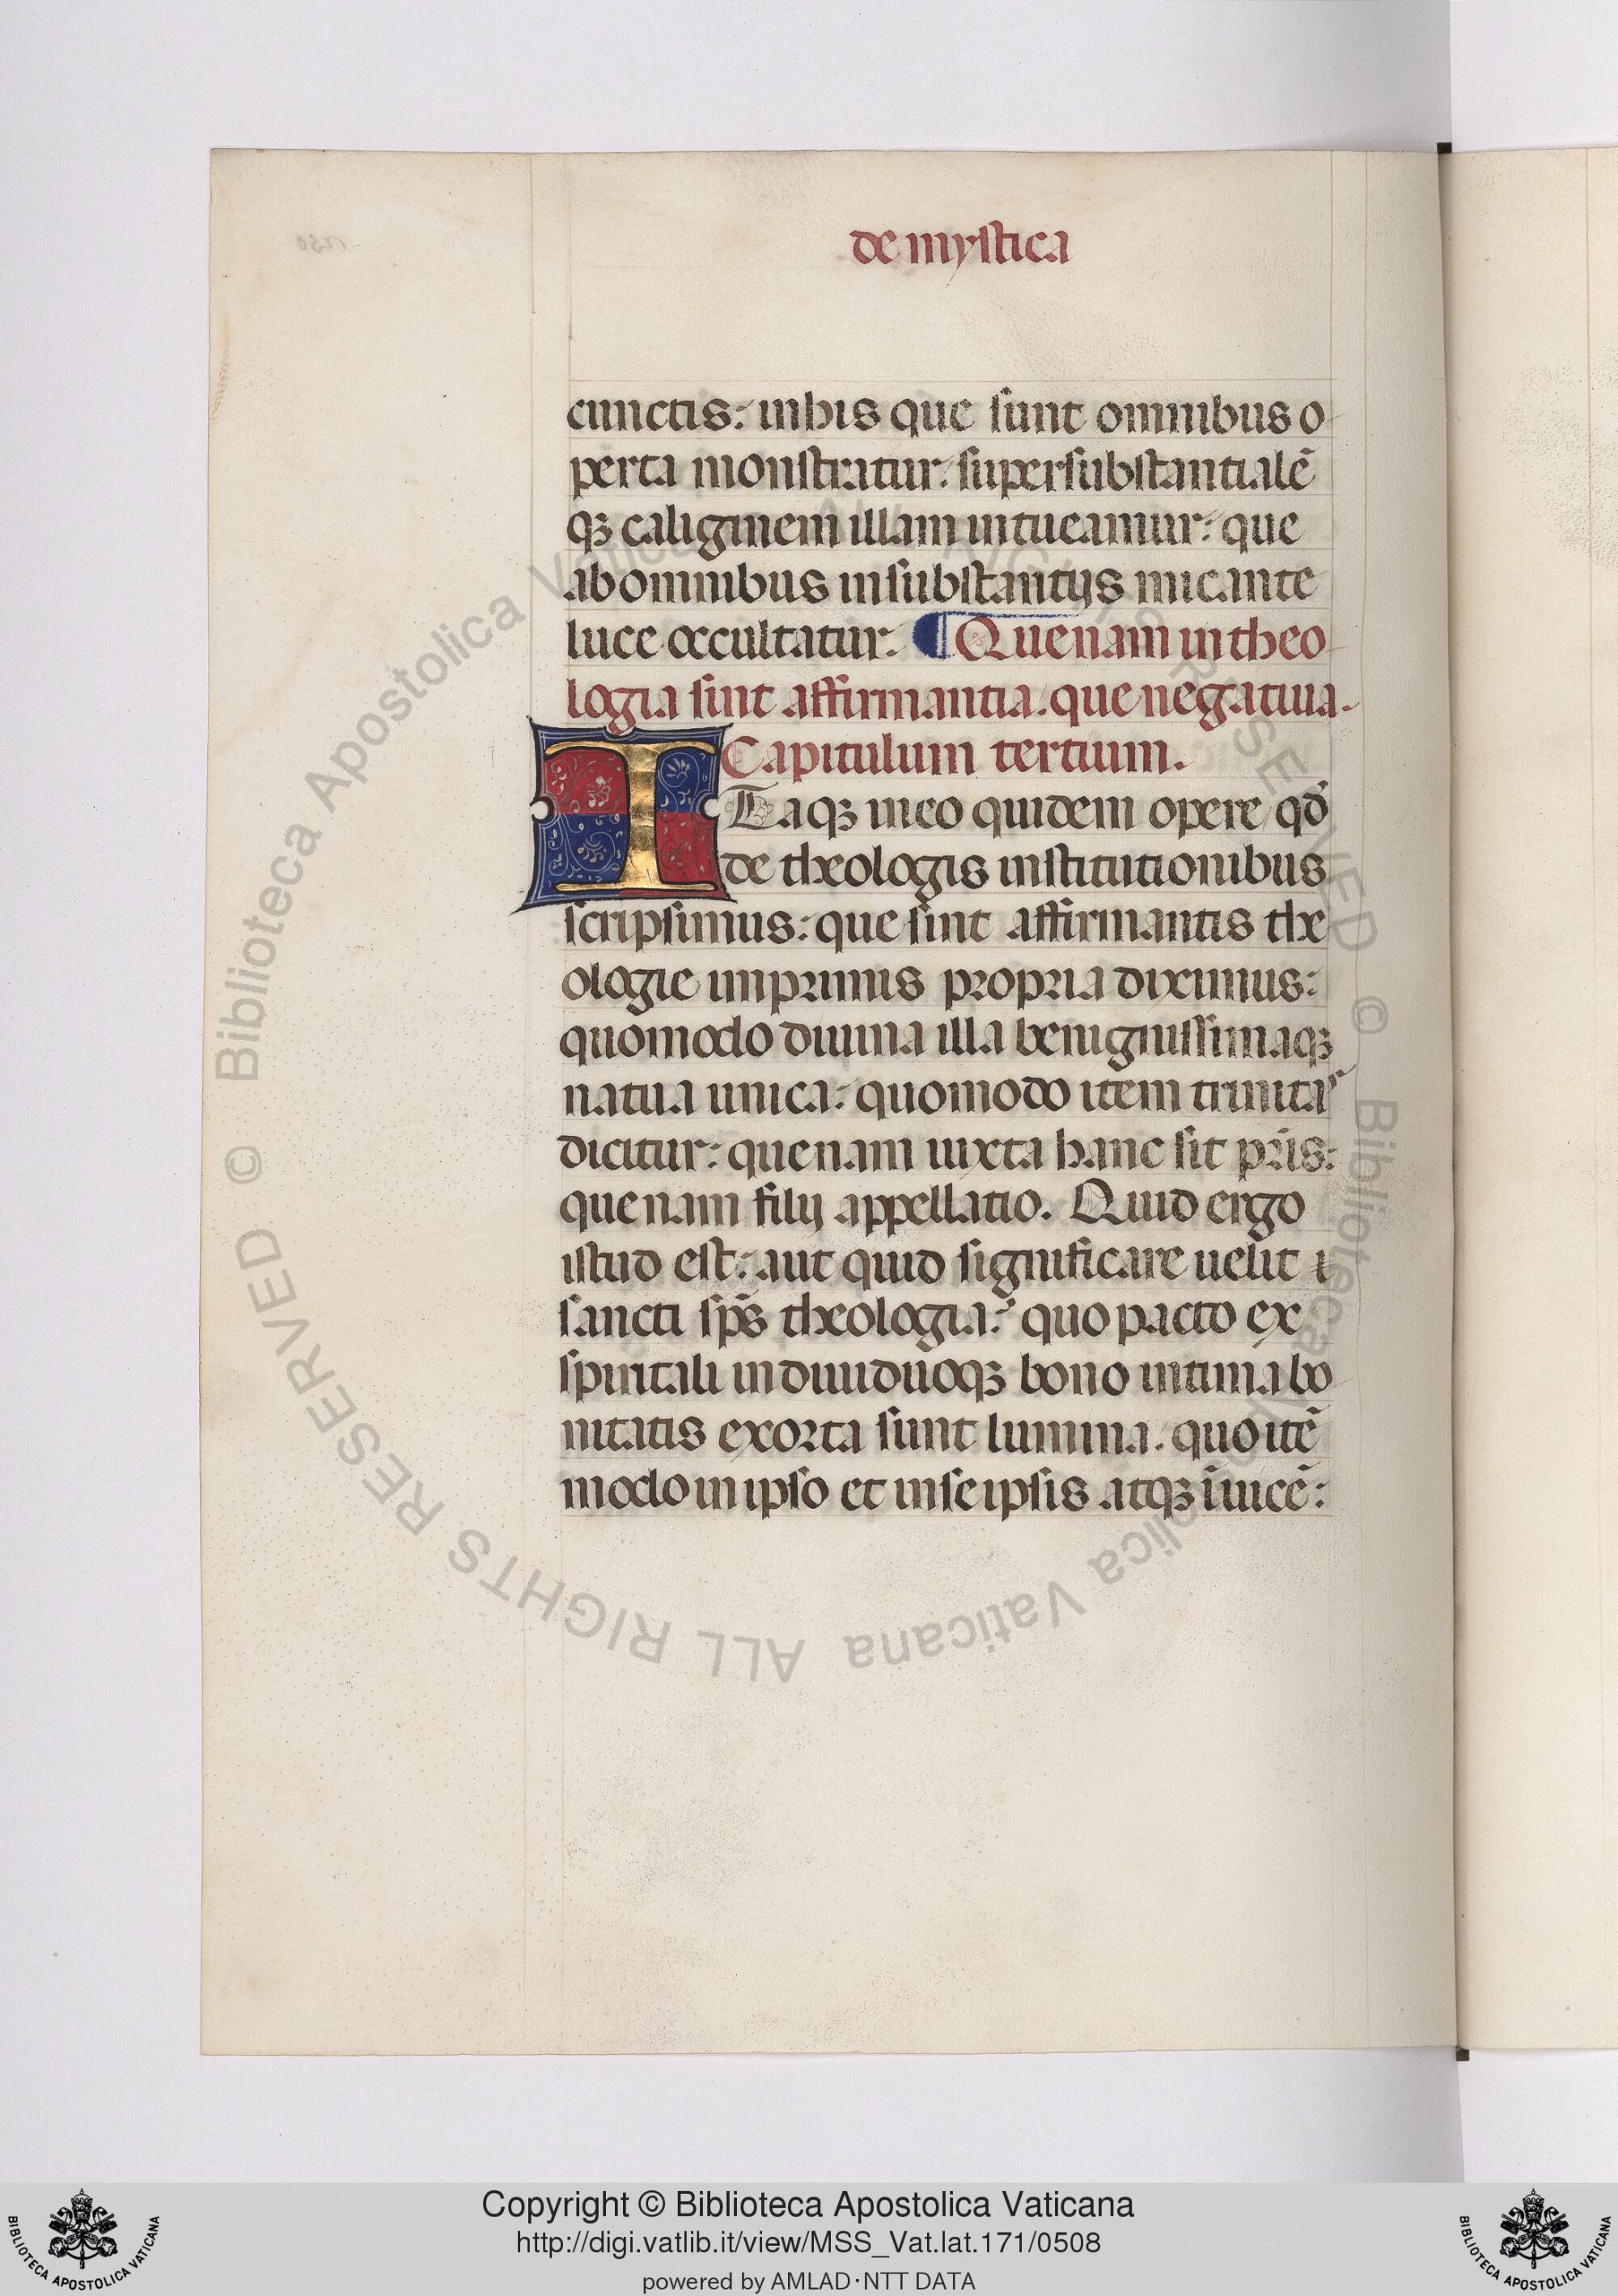 de mystica
cunctis: in his que sunt omnibus o
perta monstratur: supersubstantialē
qꝫ caliginem illam intueamur: que
ab omnibus insubstantijs micante
luce occultatur. ¶ Quenam in theo
logia sint affirmantia. que negatiua.
Capitulum tertium.
ITaqꝫ in eo quidem opere qđ
de theologis institutionibus
scripsimus: que sint affirmantis the
ologie imprimis propria diximus:
quomodo diuina illa benignissimaqꝫ
natua unica: quomodo item trinita
dicitur: quenam iuxta hanc sit pr̄is:
quenam filij appellatio. Quid ergo
istud est: aut quid significare uelit i
sancti sp̄s theologia? quo pacto ex
spiritali indiuiduoqꝫ bono intima bo
nitatis exorta sunt lumina. quo itē
modo in ipso et in se ipsis atqꝫ īuicē:
© Biblioteca Apostolica Vaticana ALL RIGHTS RESERVED © Biblioteca Apostolica Vaticana ALL RIGHTS RESERVED
Copyright © Biblioteca Apostolica Vaticana
http://digi.vatlib.it/view/MSS_Vat.lat.171/0508
powered by AMLAD·NTT DATA
BIBLIOTECA APOSTOLICA VATICANA
BIBLIOTECA APOSTOLICA VATICANA